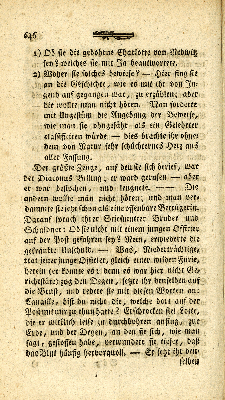 646
1) Ob sie die gebohrne Charlotte von Nebwitz
sen? welches sie mit Ja beantwortete.
2) Woher sie solches beweise? — Hier fing sie
an die Geschichte, wie es mit ihr von Ju-
gend auf gegangen war, zu erzählen; aber
die wollte man nicht hören. Man forderte
mit Ungestüm die Angebung der Beweise,
wie man sie ohngefähr als ein Gelehrter
classificiren würde — dies brachte ihr ohne
dem von Natur sehr schüchternes Herz aus
aller Fassung.
Der größte Zeuge, auf den sie sich berief, war
der Diaconus Billing; er ward gerufen — aber
er war bestochen, und leugnete. — Die
andern wollte man nicht hören, und man ver-
dammte sie schon als eine offenbare Betrügerin.
Darauf sprach ihr Bruder und
Schaldner: Ob sie nicht mit einem jungen Officier
auf der Post gefahren sey? Nein, erwiederte die
gekränkte Unschuld. — Was, Niederträchtige,
trat jener junge Officier, gleich einer wilden Furie,
herein (er konnte es; denn es war hier nicht Ge-
richtsstäte) zog den Degen, setzte ihr denselben auf
die Brust, und redete sie mit diesen Worten an:
Canaille, bist du nicht die, welche dort auf der
Post mit mir Erschrocken fiel sie,
die er wirklich leise zu durchbohren anfing, zur
Erde, und der Degen, an den sie sich, wie man
sagt, gestoßen habe, verwundete sie tiefer, daß
das Blut häufig hervorquoll. — Er setzt ihr den-
selben